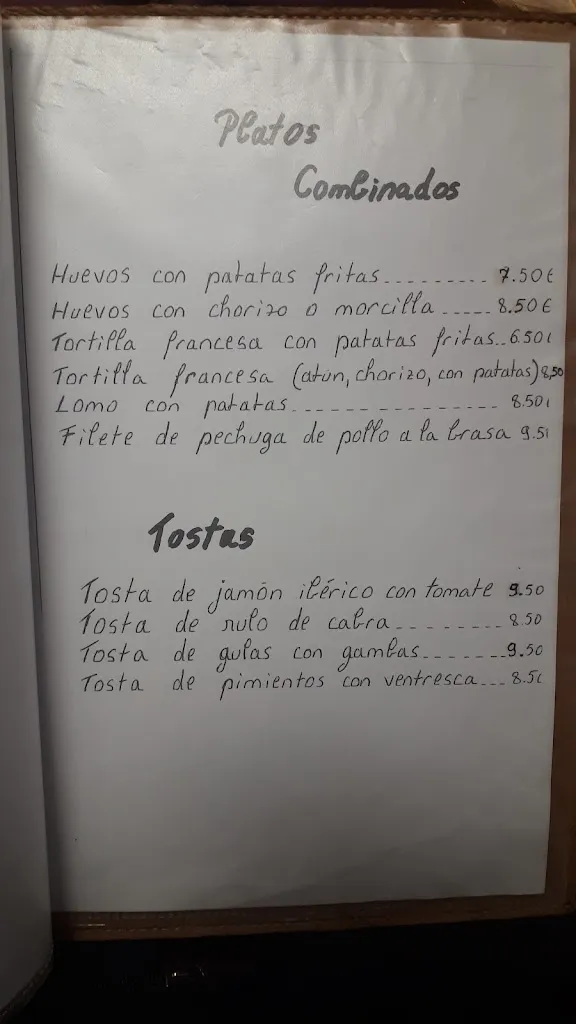 Platos
Combinados
Huevos con patatas fritas......... 7.50€
Huevos con chorizo o morcilla ..... 8.50€
Tortilla francesa con patatas fritas.. 6.50€
Tortilla francesa (atún, chorizo, con patatas) 8,50
Lomo con patatas.................. 8.50€
Filete de pechuga de pollo a la brasa 9.5
Tostas
Tosta de jamón ibérico con tomate 9.50
Tosta de rulo de cabra......... 8.50
Tosta de gulas con gambas........ 9.50
Tosta de pimientos con ventresca... 8.5